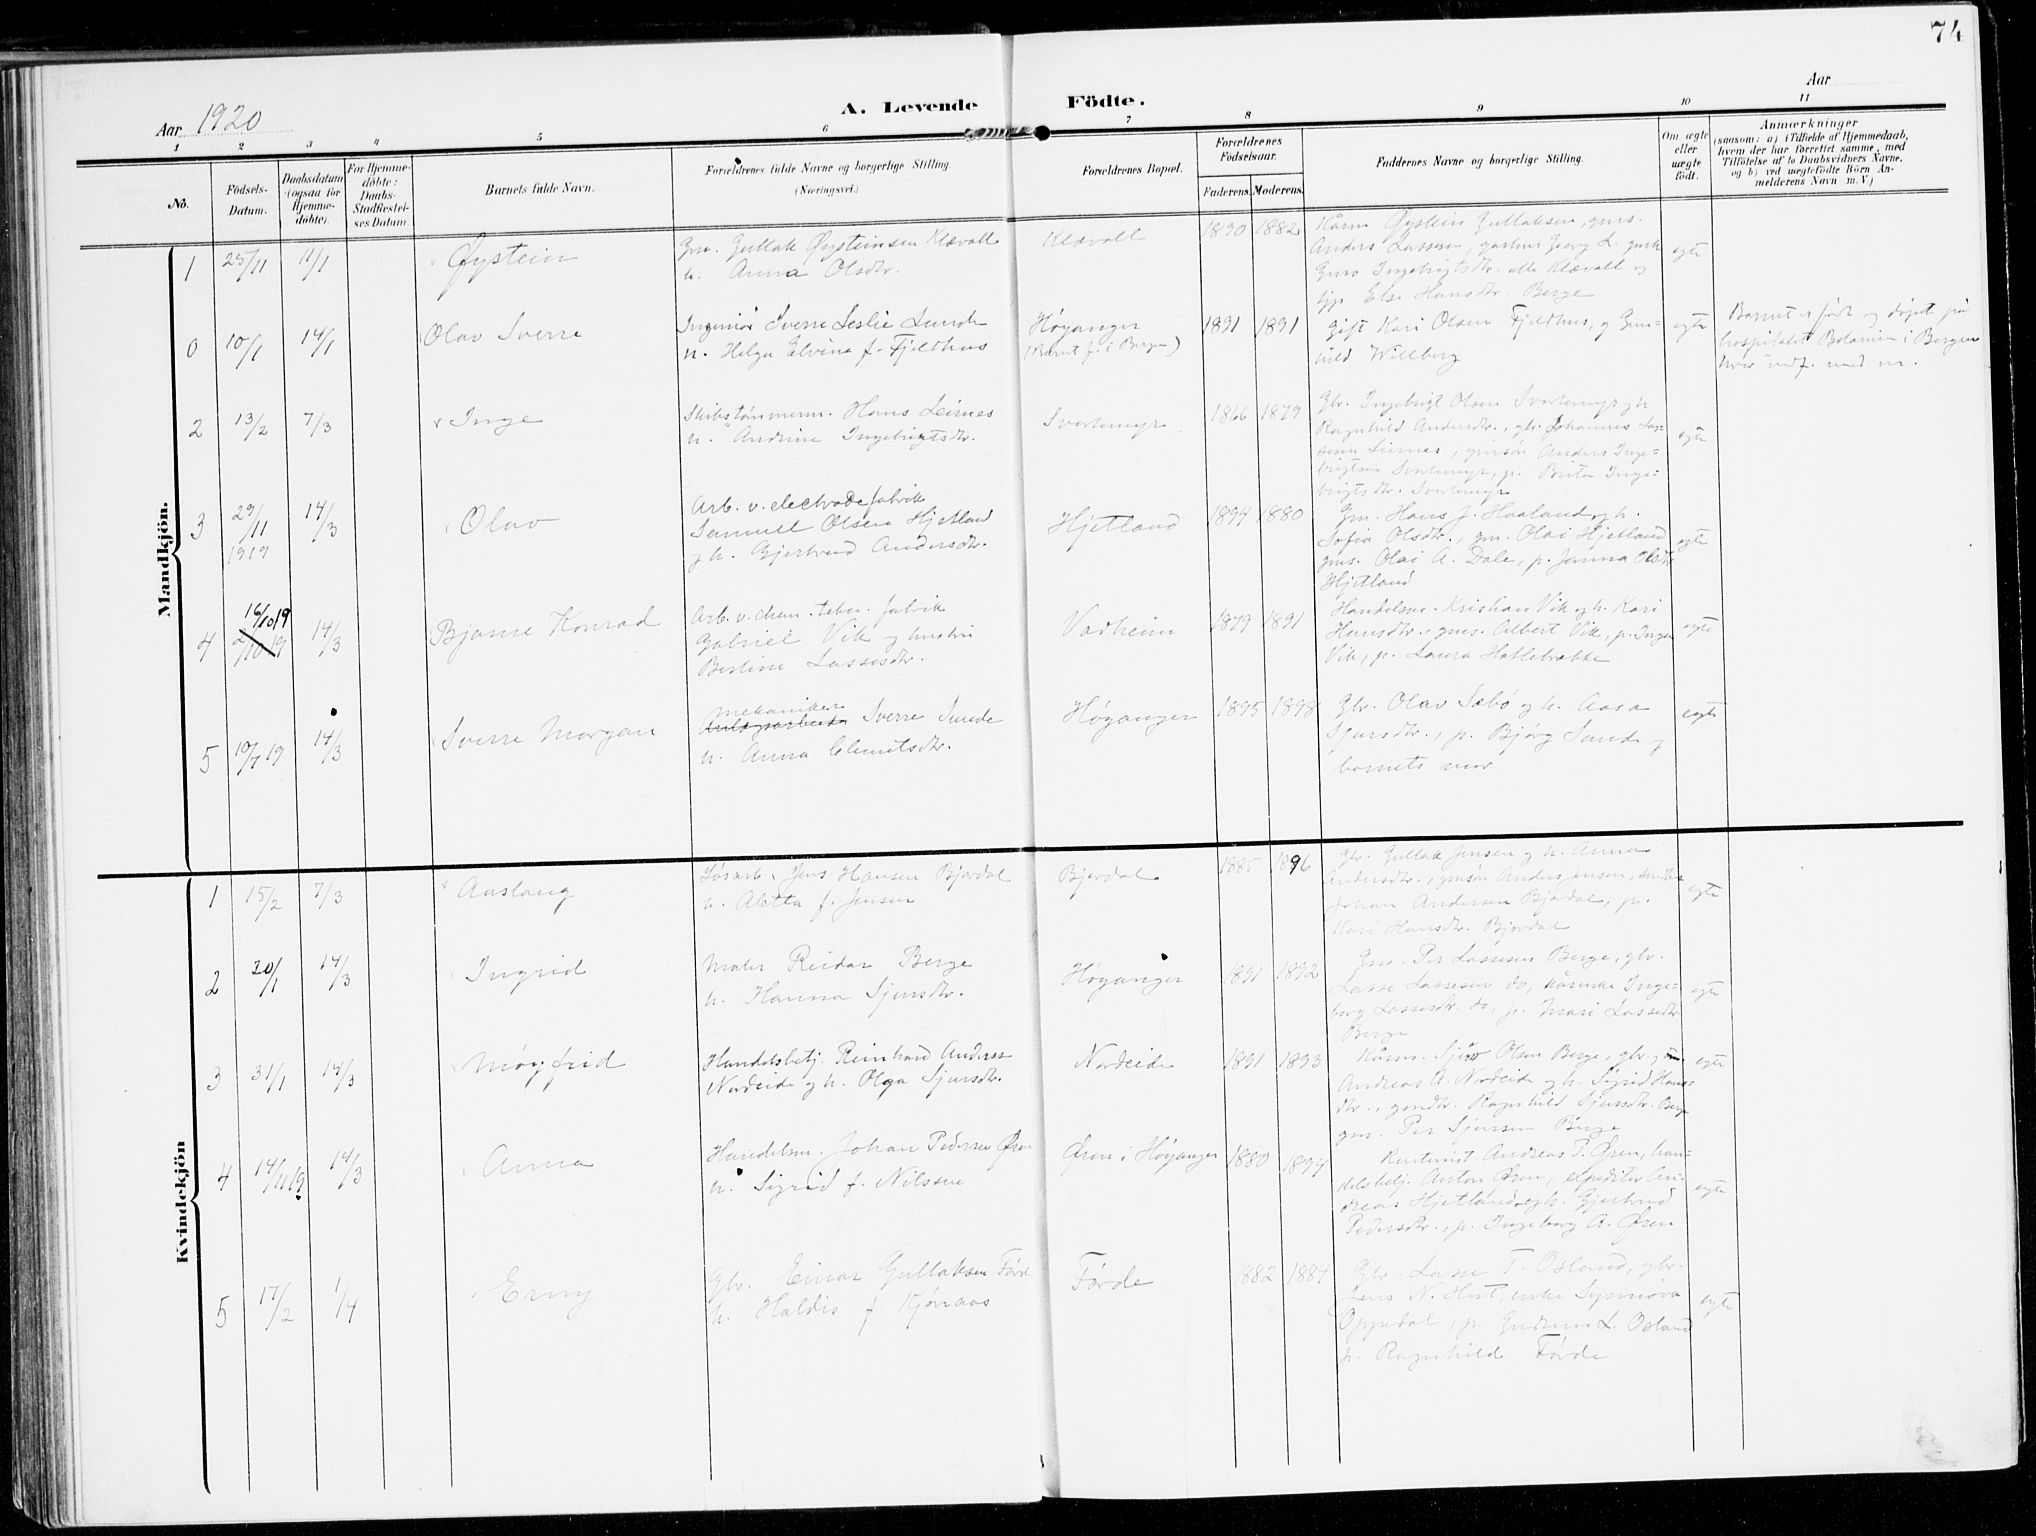 74
Aar 1920
A. Levende Födte.
Aar
1 2 3 4 5 6 7 8 9 10 11
No.
Födsels-Datum.
Daabsdatum (ogsaa for Hjemme-döbte).
For Hjemme-döbte: Daabs-Stadfæstel-ses Datum.
Barnets fulde Navn.
Forældrenes fulde Navne og borgerlige Stilling (Næringsvei.)
Forældrenes Bopæl.
Forældrenes Födselsaar.
Faderens. Moderens.
Faddernes Navne og borgerlige Stilling.
Om ægte eller uægte födt.
Anmærkninger
(saasom: a) i Tilfælde af Hjemmedaab, hvem der har forrettet samme, med Tilföielse af to Daabsvidners Navne, og b) ved uægtefödte Börn An-melderens Navn m. V.)
Mandkjön.
1 25/11 11/1 Øystein
Gm. Gullak Øysteinsen Klævoll
h. Anna Olsdtr.
Klævoll 1890 1882
Kårm. Øystein Gullaksen, gms.
Anders Lassesen, Georg L.
Guro Ingebrigtsdtr. alle Klævoll og
Else Hansdtr. Berge
egte
0 10/1 14/1 Olav Sverre
Ingeniør Sverre Leslie Lunde
h. Helga Elvina f. Fjeldhus
Høyanger
(Barnet f. i Bergen)
1891 1891
Gift Kari Olsen Fjeldhus, og Gun-
hild Willberg
egte
Barnet er født og døpt på
hospitalet Betanien i Bergen
hvor indf. med nr.
2 13/2 7/3 Inge
Skibstømmerm. Hans Leirnes
h. Andrine Ingebrigtsdtr.
Svortemyr 1866 1879
Gbr. Ingebrigt Olsen Svortemyr og h.
Ragnhild Andersdtr., gbr. Johannes Las-
sesen Leirnes, gmsøn Anders Inge-
brigtsen Svortemyr, p. Brita Inge-
brigtsdtr. Svortemyr
egte
3 29/11 1919 14/3 Olav
Arb. v. electrodefabrik
Samuel Olsen Hjetland
og h. Gjertrud Andersdtr.
Hjetland 1894 1880
Gm. Hans J. Haaland og h.
Sofia Olsdtr., gm. Olai Hjetland
gms. Olai A. Dale, p. Janna Olsdtr.
Hjetland
egte
4 16/10 19 14/3 Bjarne Konrad
Arb. v. chem. fabrik
Gabriel Vik og hustru
Bertine Lassesdtr.
Vadheim 1879 1891
Handelsm. Kristian Vik og h. Kari
Hansdtr., gms. Albert Vik, p. Inga
Vik, p. Laura Hattebrekke
egte
5 19/7 19 14/3 Sverre Morgan
mekaniker
Sverre Sunde
h. Anna Clemetsdtr.
Høyanger 1895 1898
Gbr. Olav Sæbø og h. Aasa
Sjursdtr., p. Bjørg Sunde og
barnets mor
egte
Kvindekjön
1 15/2 7/3 Aaslaug
Løsarb. Jens Hansen Bjordal
h. Aletta f. Jensen
Bjordal 1885 1896
Gbr. Gullak Jensen og h. Anna
Andersdtr., gmsøn Anders Jensen,
Johan Andersen Bjordal, p.
Kari Hansdtr. Bjordal
egte
2 20/1 14/3 Ingrid
Maler Reidar Berge
h. Hanna Sjursdtr.
Høyanger 1891 1892
Gm. Per Lassesen Berge, gbr.
Lasse Lassesen do, kårenke Inge-
borg Lassesdtr. do, p. Mari Lassesdtr.
Berge
egte
3 31/1 14/3 Møyfrid
Handelsbetj. Reinhard Anderss.
Nordeide og h. Olga Sjursdtr.
Nordeide 1891 1893
Kårm. Sjur Olsen Berge, gbr.
Andreas A. Nordeide og h. Sigrid Hans-
dtr., gmdtr. Ragnhild Sjursdtr. Berge
gm. Per Sjursen Berge
egte
4 14/11 19 14/3 Anna
Handelsm. Johan Pedersen Øren
h. Sigrid f. Nilssen
Øren i Høyanger 1880 1894
Rentenist Andreas P. Øren, han-
delsbetj. Anton Øren, expeditør An-
dreas Hjetland og h. Gjertrud
Pedersdtr., p. Ingeborg A. Øren
egte
5 17/2 1/4 Erny
Gbr. Einar Gullaksen Førde
h. Haldis f. Kjørnaas
Førde 1882 1884
Gbr. Lasse T. Osland, gbr.
Jens N. Hest, enke Synnøva
Oppedal, p. Gudrun L. Osland
p. Ragnhild Førde
egte